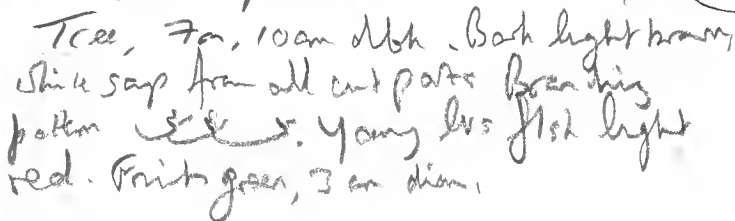 Tree, 7m, 10cm dbh. Bark light brown,
white sap from all cut parts Branching
pattern . Young lvs flsh light
red. Fruits green, 3 cm diam.